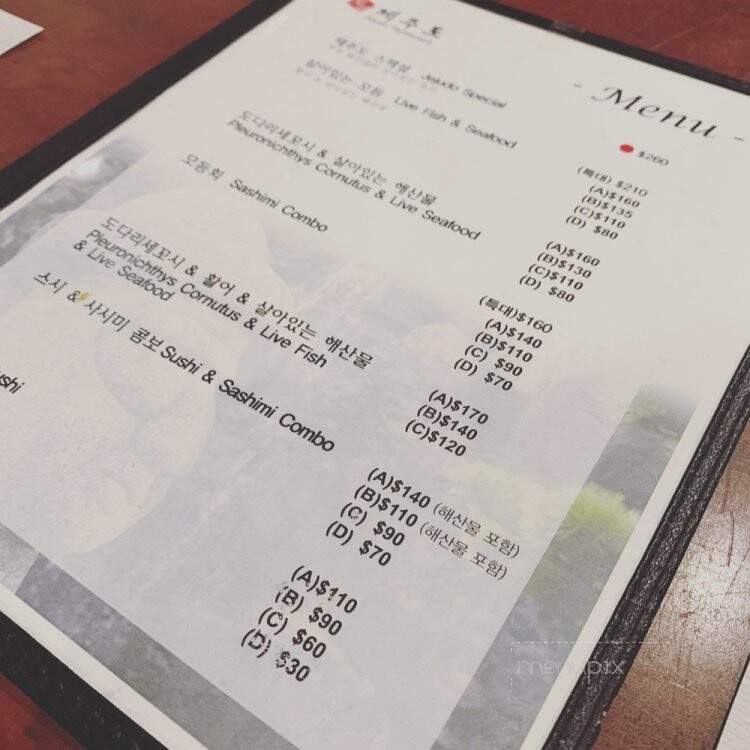 제주도
- Menu -
제주도 스페셜 Jejudo Special
$260
살아있는 모듬 Live Fish & Seafood
(특대) $210
(A)$160
(B)$135
(C)$110
(D) $80
도다리세꼬시 & 살아있는 해산물
Pleuronichthys Cornutus & Live Seafood
(A)$160
(B)$130
(C)$110
(D) $80
모둠회 Sashimi Combo
(특대)$160
(A)$140
(B)$110
(C) $90
(D) $70
도다리세꼬시 & 활어 & 살아있는 해산물
Pleuronichthys Cornutus & Live Fish
& Live Seafood
(A)$170
(B)$140
(C)$120
스시 & 사시미 콤보 Sushi & Sashimi Combo
(A)$140 (해산물 포함)
(B)$110 (해산물 포함)
(C) $90
(D) $70
(A)$110
(B) $90
(C) $60
(D) $30